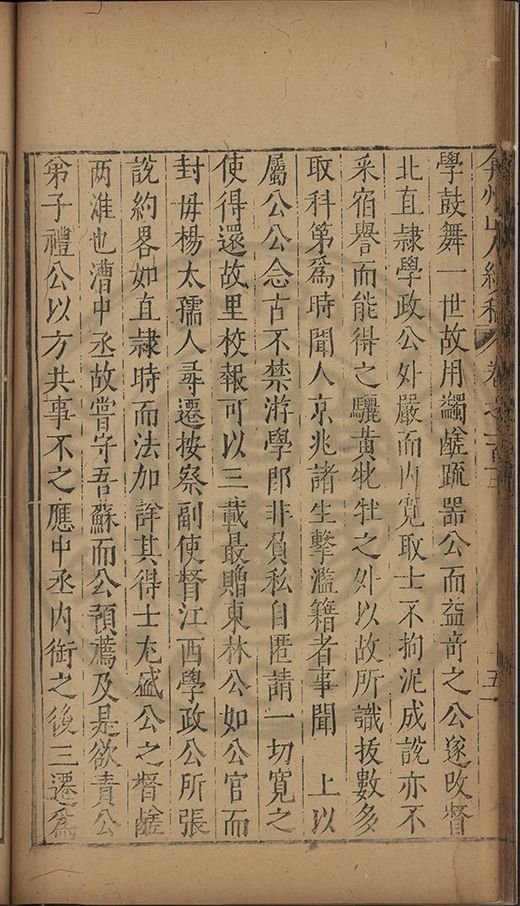 弇州山人續稿 卷之一百三 五
學鼓舞一世故用蠲鹾疏器公而益竒之公遂改督
北直隷學政公外嚴而内寛取士不拘泥成説亦不
采宿譽而能得之驪黄牝牡之外以故所識拔數多
取科第爲時聞人京兆諸生擊濫籍者事聞 上以
屬公公念古不禁游學郎非負私自匿請一切寛之
使得還故里校報可以三載最贈東林公如公官而
封毋楊太孺人尋遷按察副使督江西學政公所張
説約畧如直隷時而法加詳其得士尤盛公之督鹾
两淮也漕中丞故嘗守吾蘇而公預薦及是欲責公
弟子禮公以方共事不之應中丞内銜之後三遷爲